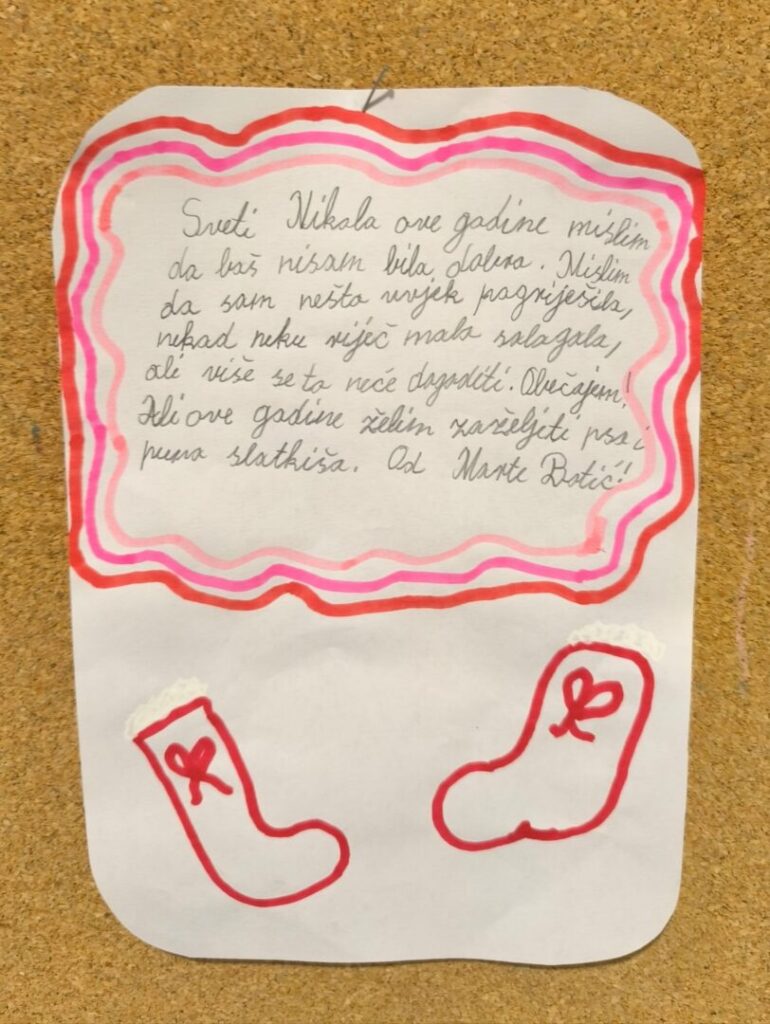 Sveti Nikola ove godine mislim
da baš nisam bila dobra. Mislim
da sam nešto uvjek pogriješila,
nekad neku riječ malo slagala,
ali više se to neće dogoditi. Obečajem!
Ali ove godine želim zaželjeti psa i
puno slatkiša. Od Marte Botić!